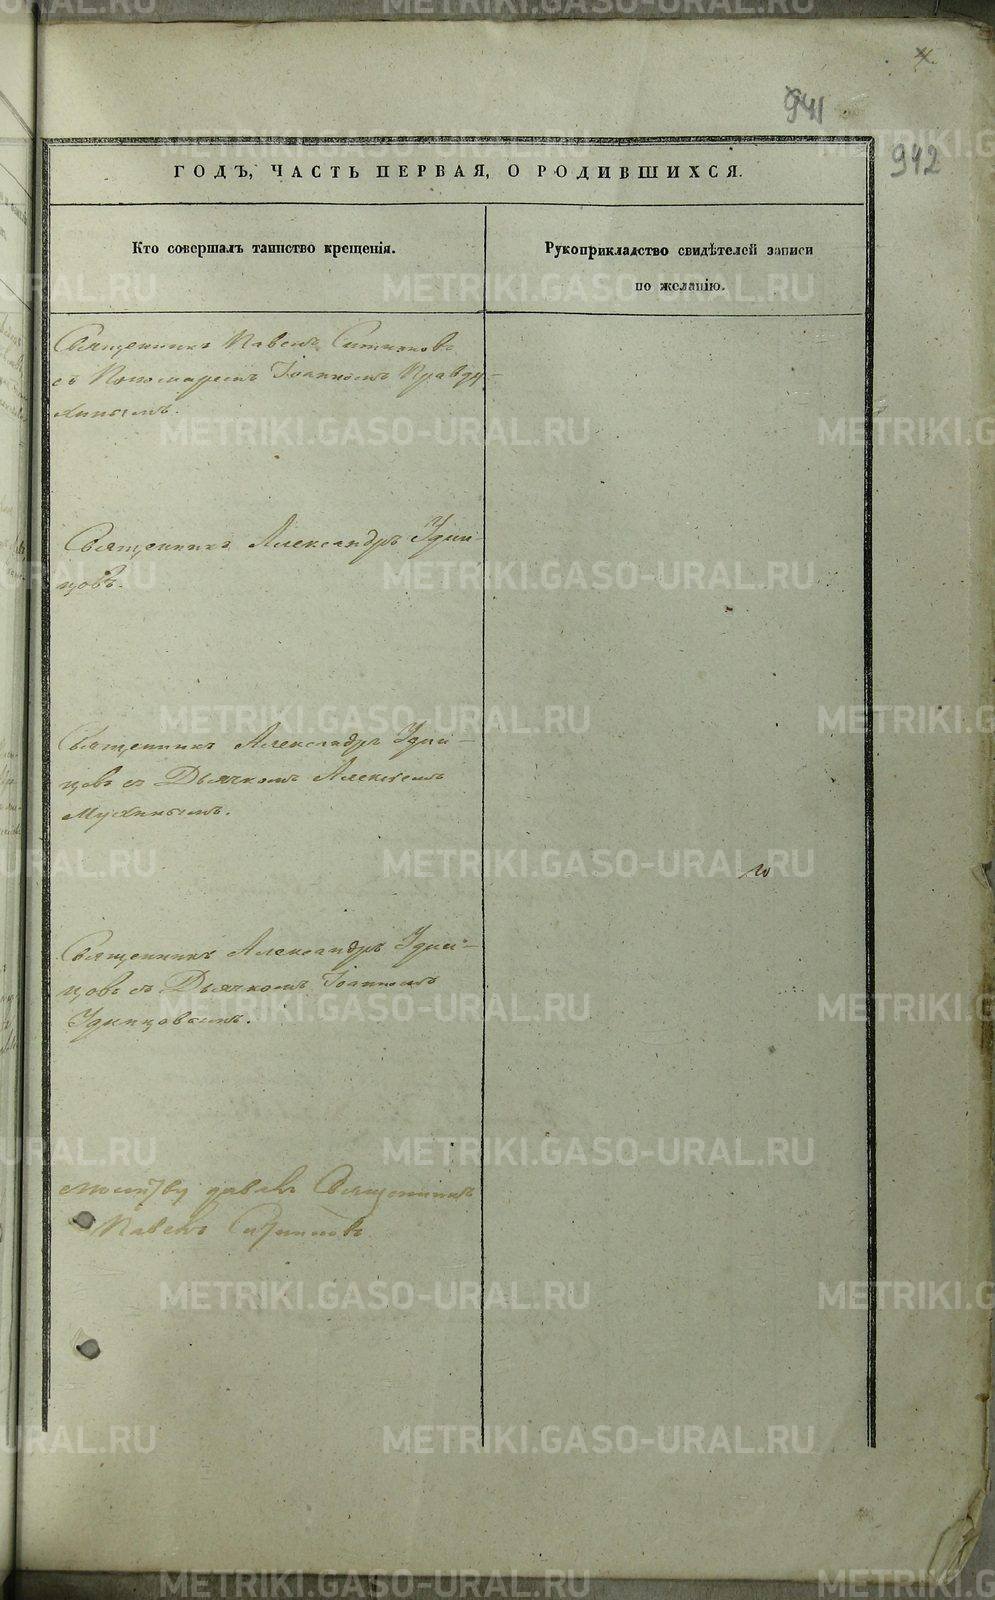 941
942
ГОДЪ, ЧАСТЬ ПЕРВАЯ, О РОДИВШИХСЯ.
Кто совершалъ таинство крещенія.
Рукоприкладство свидѣтелей записи
по желанію.
Священникъ Павелъ Ситниковъ
съ Пономаремъ Іоанномъ Правду-
хинымъ.
Священникъ Александръ Удин-
цовъ.
Священникъ Александръ Удин-
цовъ съ Дьячкомъ Алексѣемъ
Мухинымъ.
Священникъ Александръ Удин-
цовъ съ Дьячкомъ Іоанномъ
Удинцовымъ.
молитву давалъ Священникъ
Павелъ Ситниковъ
METRIKI.GASO-URAL.RU